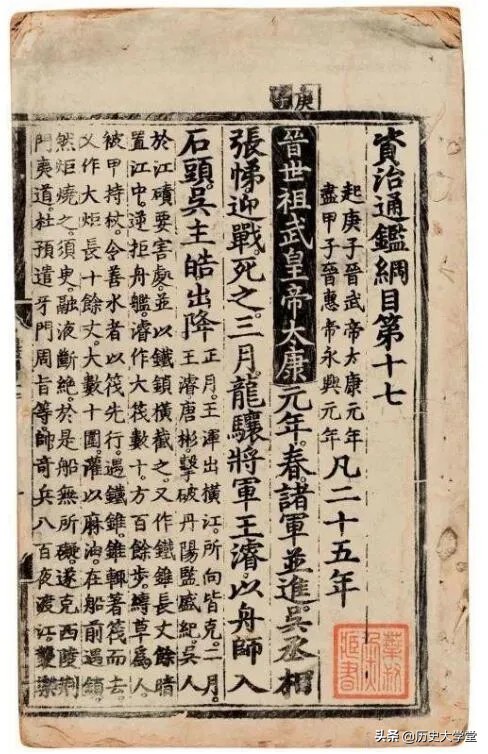 庚子
資治通鑑綱目第十七
起庚子晉武帝太康元年
盡甲子晉惠帝永興元年
凡二十五年
晉世祖武皇帝太康元年。春。諸軍並進。吳丞相
張悌迎戰。死之。三月。龍驤將軍王濬。以舟師入
石頭。吳主皓出降
正月。王渾出橫江。所向皆克。二月。
王濬唐彬擊破丹陽監盛紀。吳人
於江磧要害處。並以鐵鎖橫截之。又作鐵錐長丈餘暗
置江中。逆拒舟艦。濬作大筏數十。方百餘步。縛草爲人。
被甲持杖。令善水者以筏先行。遇鐵錐。錐輒著筏而去。
又作大炬長十餘丈。大數十圍。灌以麻油。在船前遇鎖。
然炬燒之。須臾。融液斷絶。於是船無所礙。遂克西陵荊
門夷道。杜預遣牙門周旨等。帥奇兵八百夜渡江。襲樂
头条 @历史大学堂